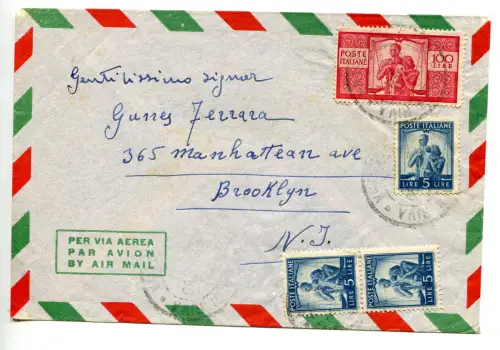 POSTE
ITALIANE
100
LIRE
Gentilissimo Signor
Gunnes Ferrara
365 manhattean ave
Brooklyn
N. J.
POSTE ITALIANE
LIRE 5 LIRE
PER VIA AEREA
PAR AVION
BY AIR MAIL
POSTE ITALIANE
LIRE 5 LIRE
POSTE ITALIANE
LIRE 5 LIRE